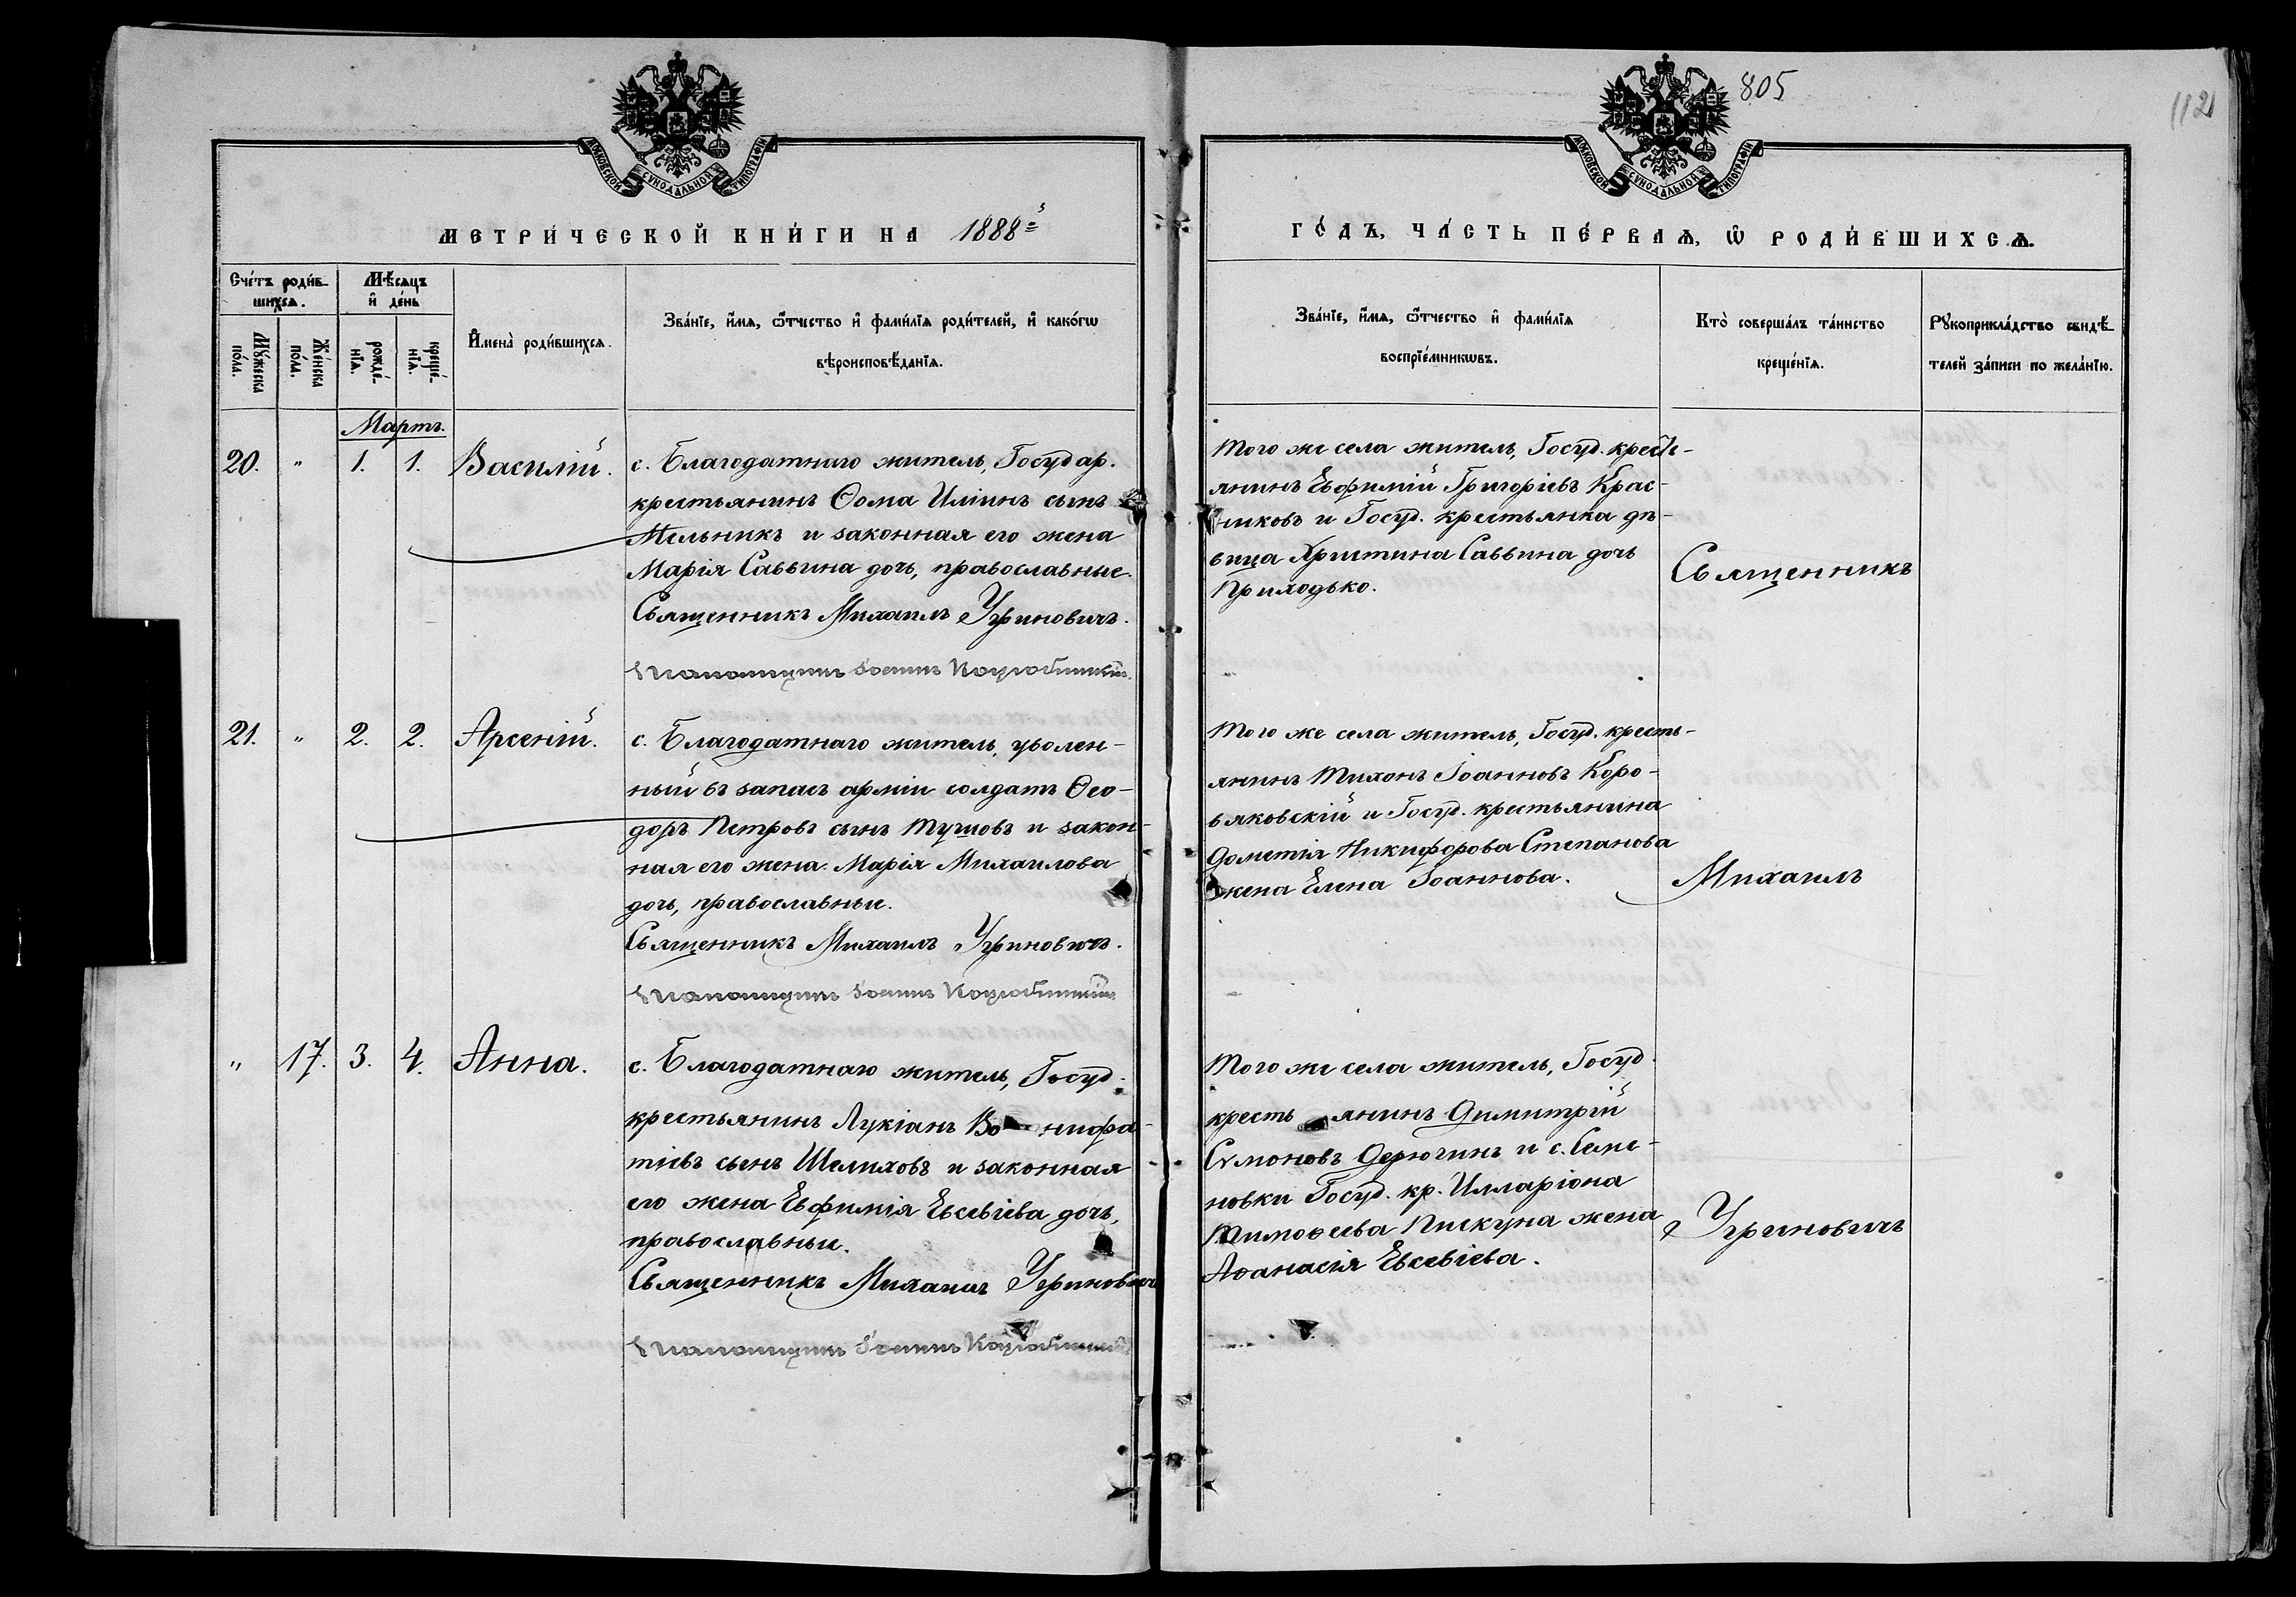 805
112
МОСКОВСКОЙ СУНОДАЛЬНОЙ ТИПОГРАФІИ
МОСКОВСКОЙ СУНОДАЛЬНОЙ ТИПОГРАФІИ
МЕТРИ́ЧЕСКОЙ КНИ́ГИ НА 1888й
ГО́ДЪ, ЧА́СТЬ ПЕ́РВАѦ, Ѡ҆ РОДИ́ВШИХСѦ.
Сче́тъ роди́в-
шихсѧ.
Мѣ́сѧцъ
и҆ де́нь
Мꙋ́жеска
по́ла.
Же́нска
по́ла.
рожде́-
нїѧ.
креще́-
нїѧ.
И҆мена̀ роди́вшихсѧ.
Зва́нїе, и҆́мѧ, ѻ҆́тчество и҆ фами́лїѧ роди́телей, и҆ како́гѡ
вѣроисповѣ́данїѧ.
Зва́нїе, и҆́мѧ, ѻ҆́тчество и҆ фами́лїѧ
воспрїе́мникѡвъ.
Кто̀ соверша́лъ та́инство
креще́нїѧ.
Рꙋкоприкла́дство свидѣ́-
телей за́писи по жела́нїю.
Мартъ.
20. " 1. 1. Василій.
с. Благодатнаго житель, Государ.
крестьянинъ Ѳома Иліинъ сынъ
Мельникъ и законная его жена
Марія Саввина дочь, православные.
Священникъ Михаилъ Угриновичъ.
Псаломщикъ Іоаннъ
Того же села житель, Госуд. кресть-
янинъ Евфимій Григоріевъ Крас-
никовъ и Госуд. крестьянка дѣ-
вица Христина Саввина дочь
Приходько.
Священникъ
21. " 2. 2. Арсеній.
с. Благодатнаго житель, уволен-
ный въ запасъ арміи солдатъ Ѳео-
доръ Петровъ сынъ и закон-
ная его жена Марія Михаилова
дочь, православные.
Священникъ Михаилъ Угриновичъ.
Псаломщикъ Іоаннъ
Того же села житель, Госуд. кресть-
янинъ Тихонъ Іоанновъ Коро-
вяковскій и Госуд. крестьянина
Дометія Никифорова Степанова
жена Елена Іоаннова.
Михаилъ
" 17. 3. 4. Анна.
с. Благодатнаго житель, Госуд.
крестьянинъ Лукіанъ Во нифа-
тіевъ сынъ Шелиховъ и законная
его жена Евфимія Евсевіева дочь,
православные.
Священникъ Михаилъ Угриновичъ
Псаломщикъ Іоаннъ
Того же села житель, Госуд.
кресть янинъ Димитрій
Сѵмоновъ Дерюгинъ и с. Семе-
новки Госуд. кр. Илларіона
Тимоѳеева Пискуна жена
Аѳанасія Евсевіева.
Угриновичъ